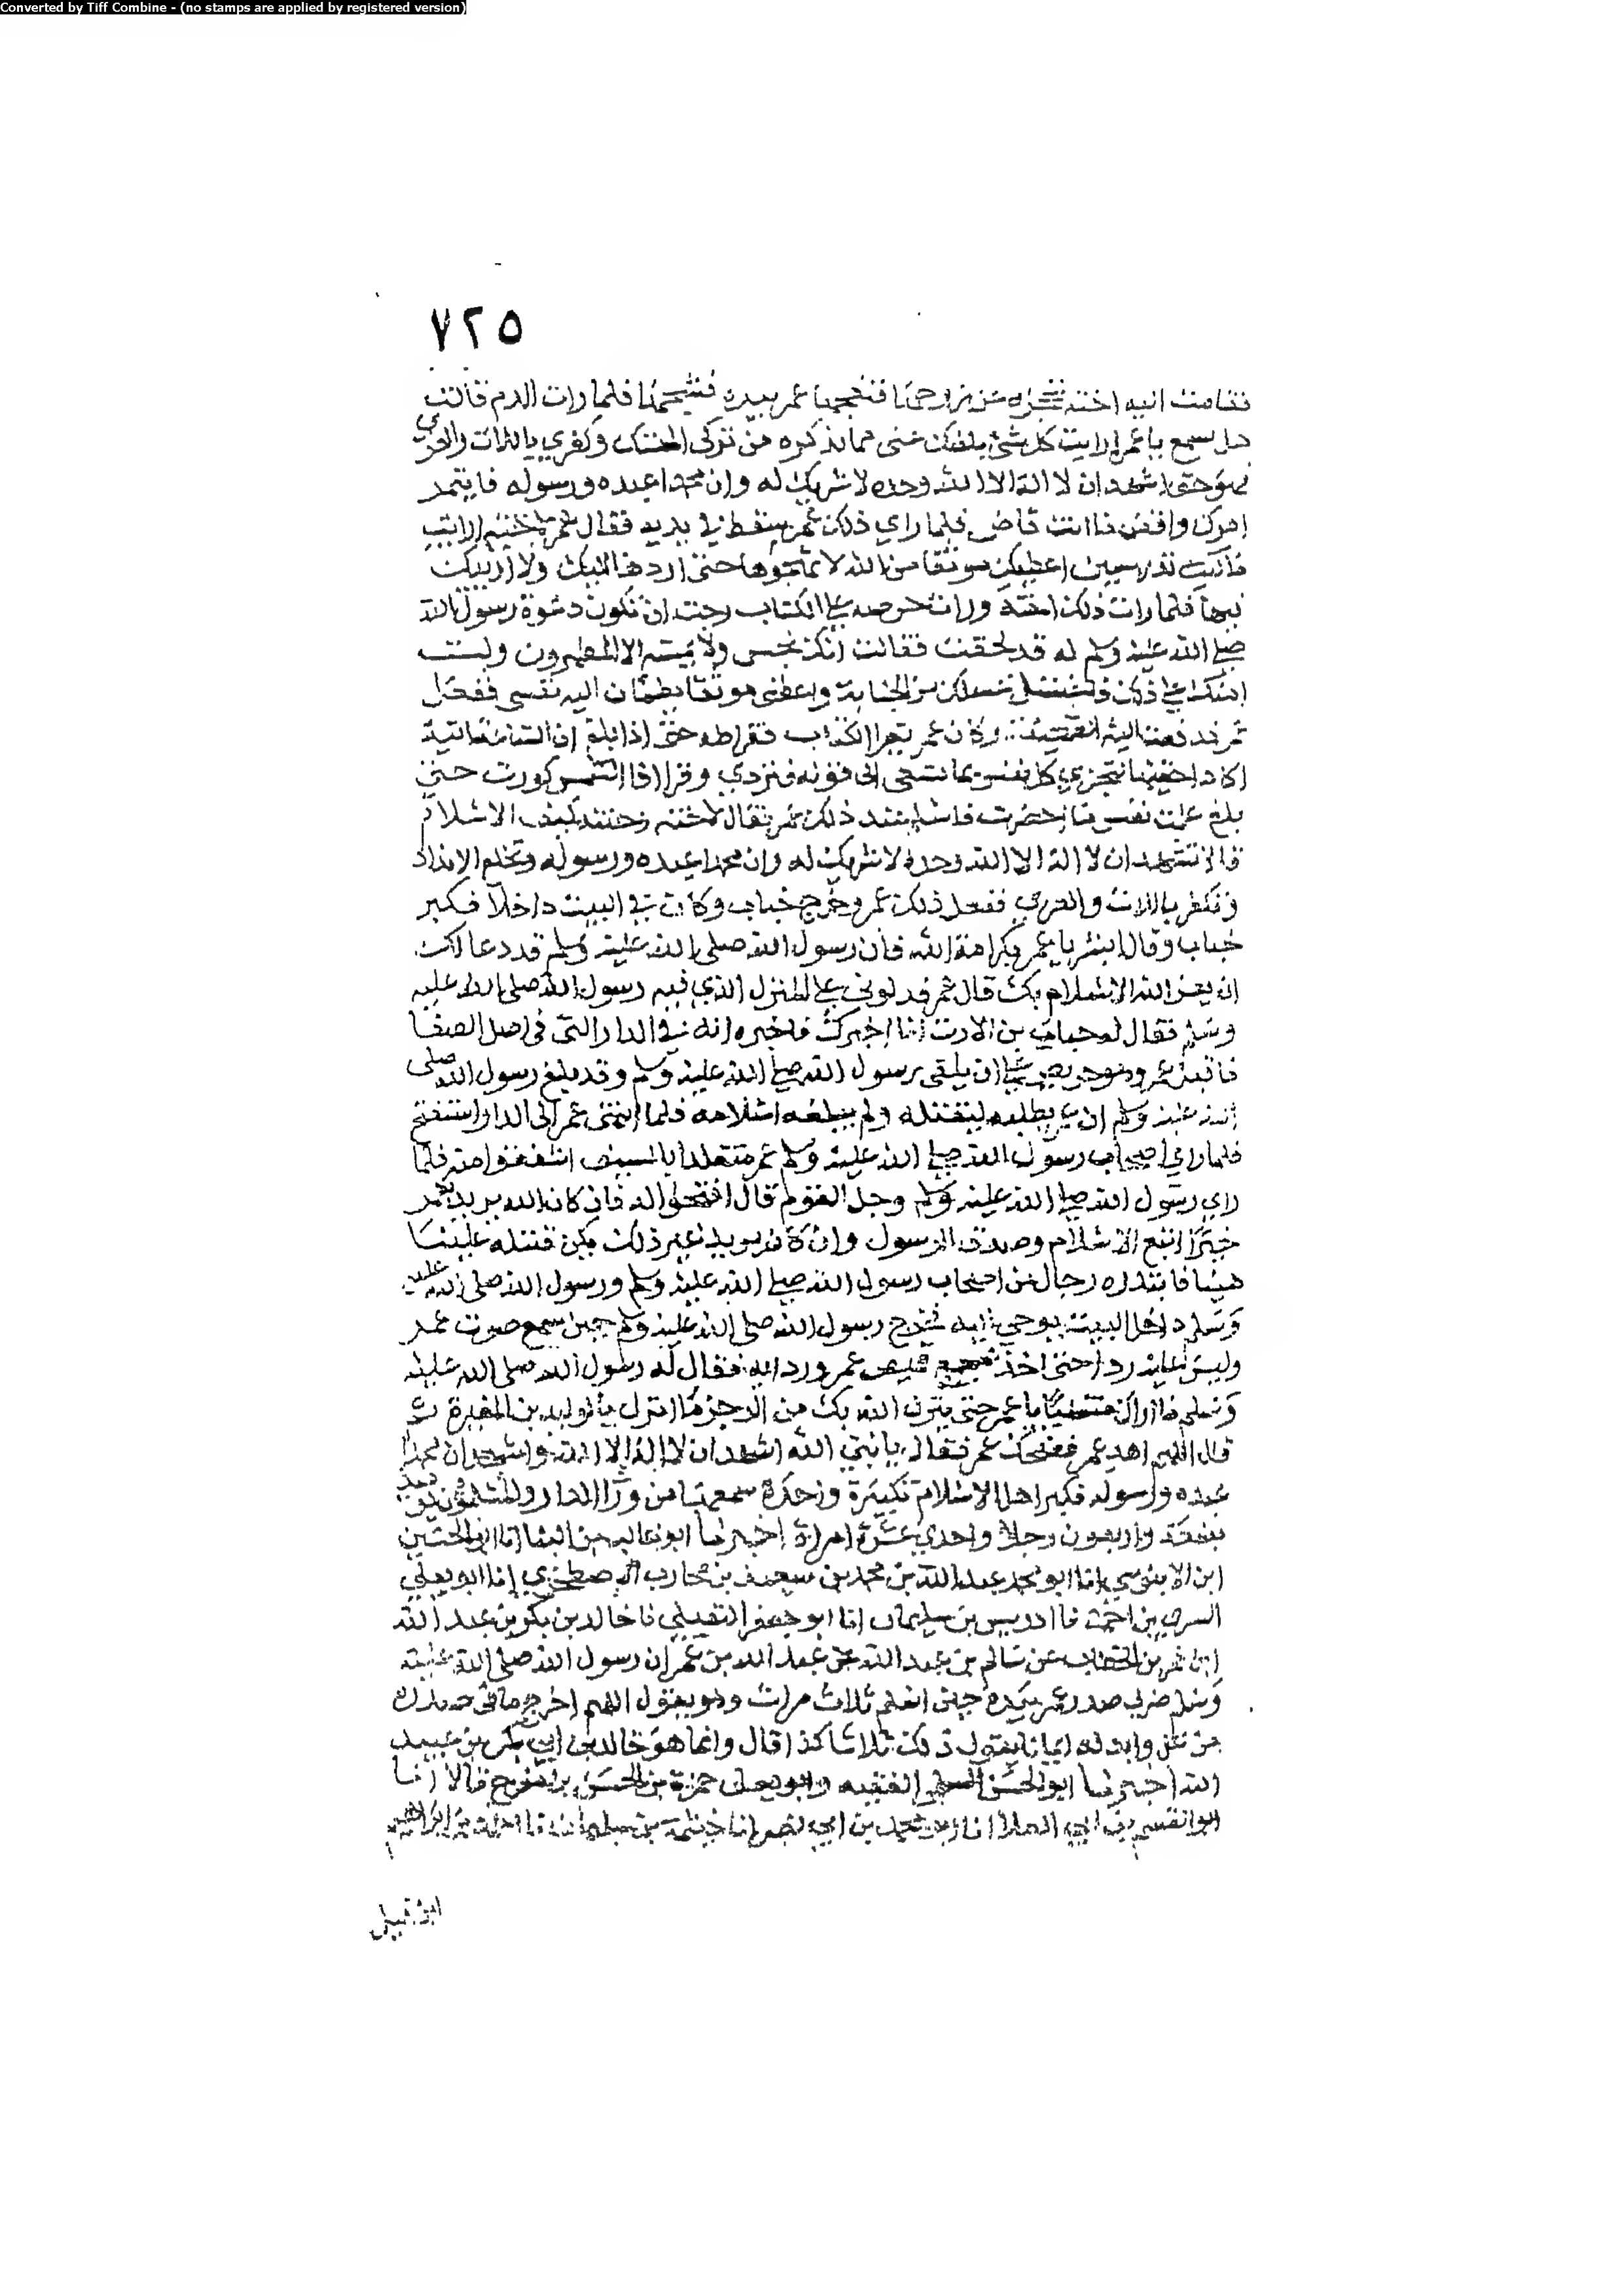 Converted by Tiff Combine - (no stamps are applied by registered version)
٧٢٥
فقامت اليه اخته تحجزه عن زوجها فنفحها عمر بيده فشجها فلما رات الدم قالت
هل تسمع يا عمر ارايت كل شئ بلغك عني مما تذكره من تركي الهتك وكفري باللات والعزى
فهو حق اشهد ان لا اله الا الله وحده لا شريك له وان محمدا عبده ورسوله فايتمر
امرك واقض ما انت قاض فلما راي ذلك عمر سقط في يديه فقال عمر لاخته ارايت
ما كنت تدرسين اعطيك موثقا من الله لا امحوها حتى اردها اليك ولا اريبك
فيها فلما رات ذلك اخته ورات حرصه على الكتاب رجت ان تكون دعوة رسول الله
صلى الله عليه وسلم له قد لحقت فقالت انك نجس ولا يمسه الا المطهرون ولست
امنك على ذلك فاغتسل غسلك من الجنابة واعطني موثقا يطمئن اليه نفسي ففعل
عمر فدفعت اليه الصحيفة وكان عمر يقرا الكتاب فقرا طه حتى اذا بلغ ان الساعة اتية
اكاد اخفيها لتجزي كل نفس بما تسعى الى قوله فتردي وقرا اذا الشمس كورت حتى
بلغ علمت نفس ما احضرت فاسلم عند ذلك عمر فقال لاخته وختنه كيف الاسلام
قالا تشهد ان لا اله الا الله وحده لا شريك له وان محمدا عبده ورسوله وتخلع الانداد
وتكفر باللات والعزي ففعل ذلك عمر وخرج خباب وكان في البيت داخلا فكبر
خباب وقال ابشر يا عمر بكرامة الله فان رسول الله صلى الله عليه وسلم قد دعا لك
ان يعز الله الاسلام بك قال عمر فدلوني على المنزل الذي فيه رسول الله صلى الله عليه
وسلم فقال له خباب بن الارت انا اخبرك فاخبره انه في الدار التي في اصل الصفا
فاقبل عمر وهو حريص على ان يلقى رسول الله صلى الله عليه وسلم وقد بلغ رسول الله صلى
الله عليه وسلم ان عمر يطلبه ليقتله ولم يبلغه اسلامه فلما انتهى عمر الى الدار استفتح
فلما راي اصحاب رسول الله صلى الله عليه وسلم عمر متقلدا بالسيف اشفقوا منه فلما
راي رسول الله صلى الله عليه وسلم وجل القوم قال افتحوا له فان كان الله يريد بعمر
خيرا اتبع الاسلام وصدق الرسول وان كان يريد غير ذلك يكن قتله علينا
هينا فابتدره رجال من اصحاب رسول الله صلى الله عليه وسلم ورسول الله صلى الله عليه
وسلم داخل البيت يوحي اليه فخرج رسول الله صلى الله عليه وسلم حين سمع صوت عمر
وليس عليه ردا حتى اخذ بمجمع قميص عمر وردايه فقال له رسول الله صلى الله عليه
وسلم ما اراك منتهيا يا عمر حتى ينزل الله بك من الرجز ما انزل بالوليد بن المغيرة ثم
قال اللهم اهد عمر فضحك عمر فقال يا نبي الله اشهد ان لا اله الا الله واشهد ان محمدا
عبده ورسوله فكبر اهل الاسلام تكبيرة واحدة سمعها من ورا الدار والمسلمون يوميذ
بضعة واربعون رجلا واحدي عشرة امراة اخبرنا ابو غالب بن البنا انا ابو الحسين
ابن الابنوسي انا ابو محمد عبد الله بن محمد بن سعيد بن محارب الاصطخري انا ابو يعلي
السري بن احمد نا ادريس بن سليمان انا ابو جعفر النفيلي نا خالد بن بكر بن عبد الله
ابن عمر بن الخطاب عن سالم بن عبد الله عن عبد الله بن عمر ان رسول الله صلى الله عليه
وسلم ضرب صدر عمر بيده حين اسلم ثلاث مرات وهو يقول اللهم اخرج ما في صدره
من غل وابدله ايمانا يقول ذلك ثلاثا كذا قال وانما هو خالد بن ابي بكر بن عبيد
الله اخبرنا ابو الحسن السلمي الفقيه وابو يعلى حمزة بن الحسن بن المفرج قالا انا
ابو القسم بن ابي العلا انا ابو محمد بن ابي نصر انا خيثمة بن سليمان نا ابراهيم